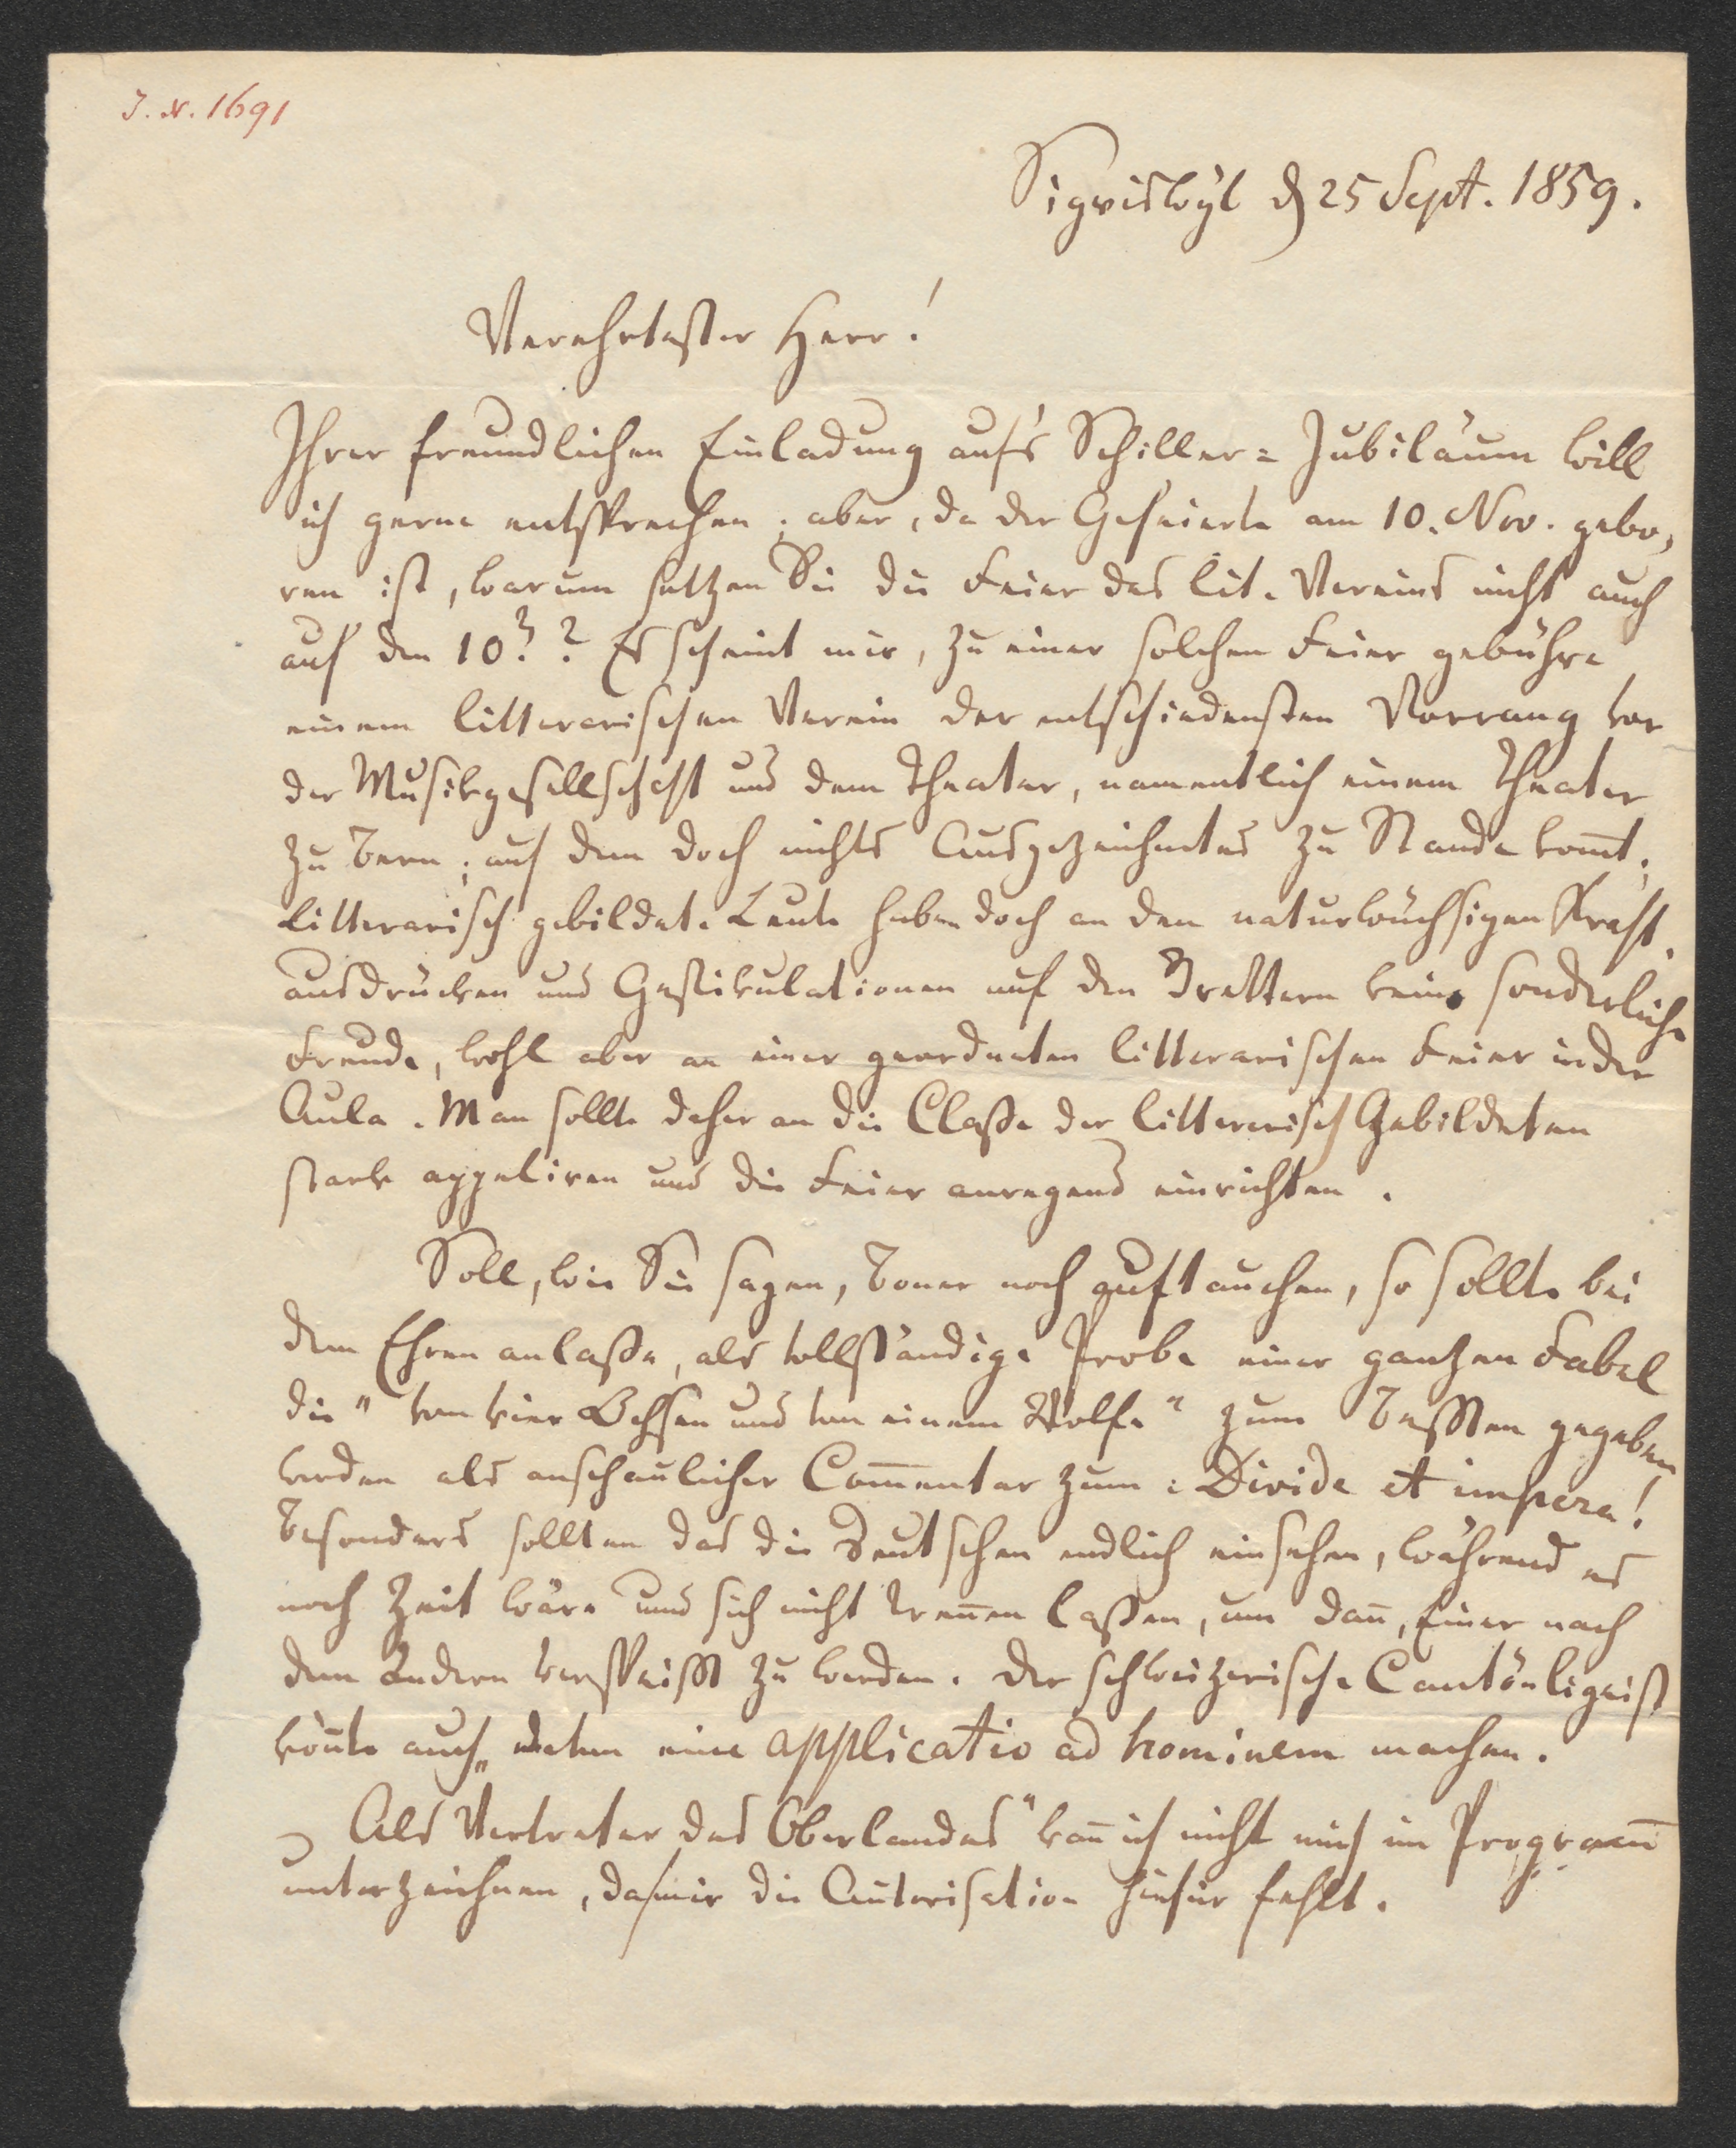 J. N. 1691
Sigriswyl d 25 Sept. 1859.
Verehrtester Herr!
Ihrer freundlichen Einladung auf's Schiller=Jubiläum will
ich gerne entsprechen; aber, da der Gefeierte am 10. Nov. gebo,
ren ist, warum setzen Sie die Feier des lit. Vereins nicht auch
auf den 10? ? Es scheint mir, zu einer solchen Feier gebühre
einem litterarischen Verein der entschiedensten Vorrang vor
der Musikgesellschaft und dem Theater, namentlich einem Theater
zu Bern, auf dem doch nichts Ausgezeichnetes zu Stande kom̄t;
litterarisch gebildete Leute haben doch an den naturwüchsigen Kraft,
ausdrücken und Gestikulationen auf den Brettern keine sonderliche
Freude, wohl aber an einer geordneten litterarischen Feier in der
Aula. Man sollte daher an die Classe der litterarisch Gebildeten
stark appeliren und die Feier anregend einrichten.
Soll, wie Sie sagen, Boner noch auftauchen, so sollte bei
dem Ehrenanlasse, als vollständige Probe einer ganzen Fabel
die "von vier Ochsen und von einem Wolfe" zum Besten gegeben
werden als anschaulicher Com̄entar zum: Divide et impera!
Besonders sollten das die Deutschen endlich einsehen, während es
noch Zeit wäre und sich nicht tren̄en lassen, um dan̄, Einer nach
dem Andern verspeisst zu werden. Der schweizerische Cantönligeist
kön̄te auch eine applicatio ad hominem machen.
„Als Vertreter des Oberlandes" kan̄ ich nicht mich im Program̄
unterzeichnen, da mir die Autorisation hiefür fehlt.